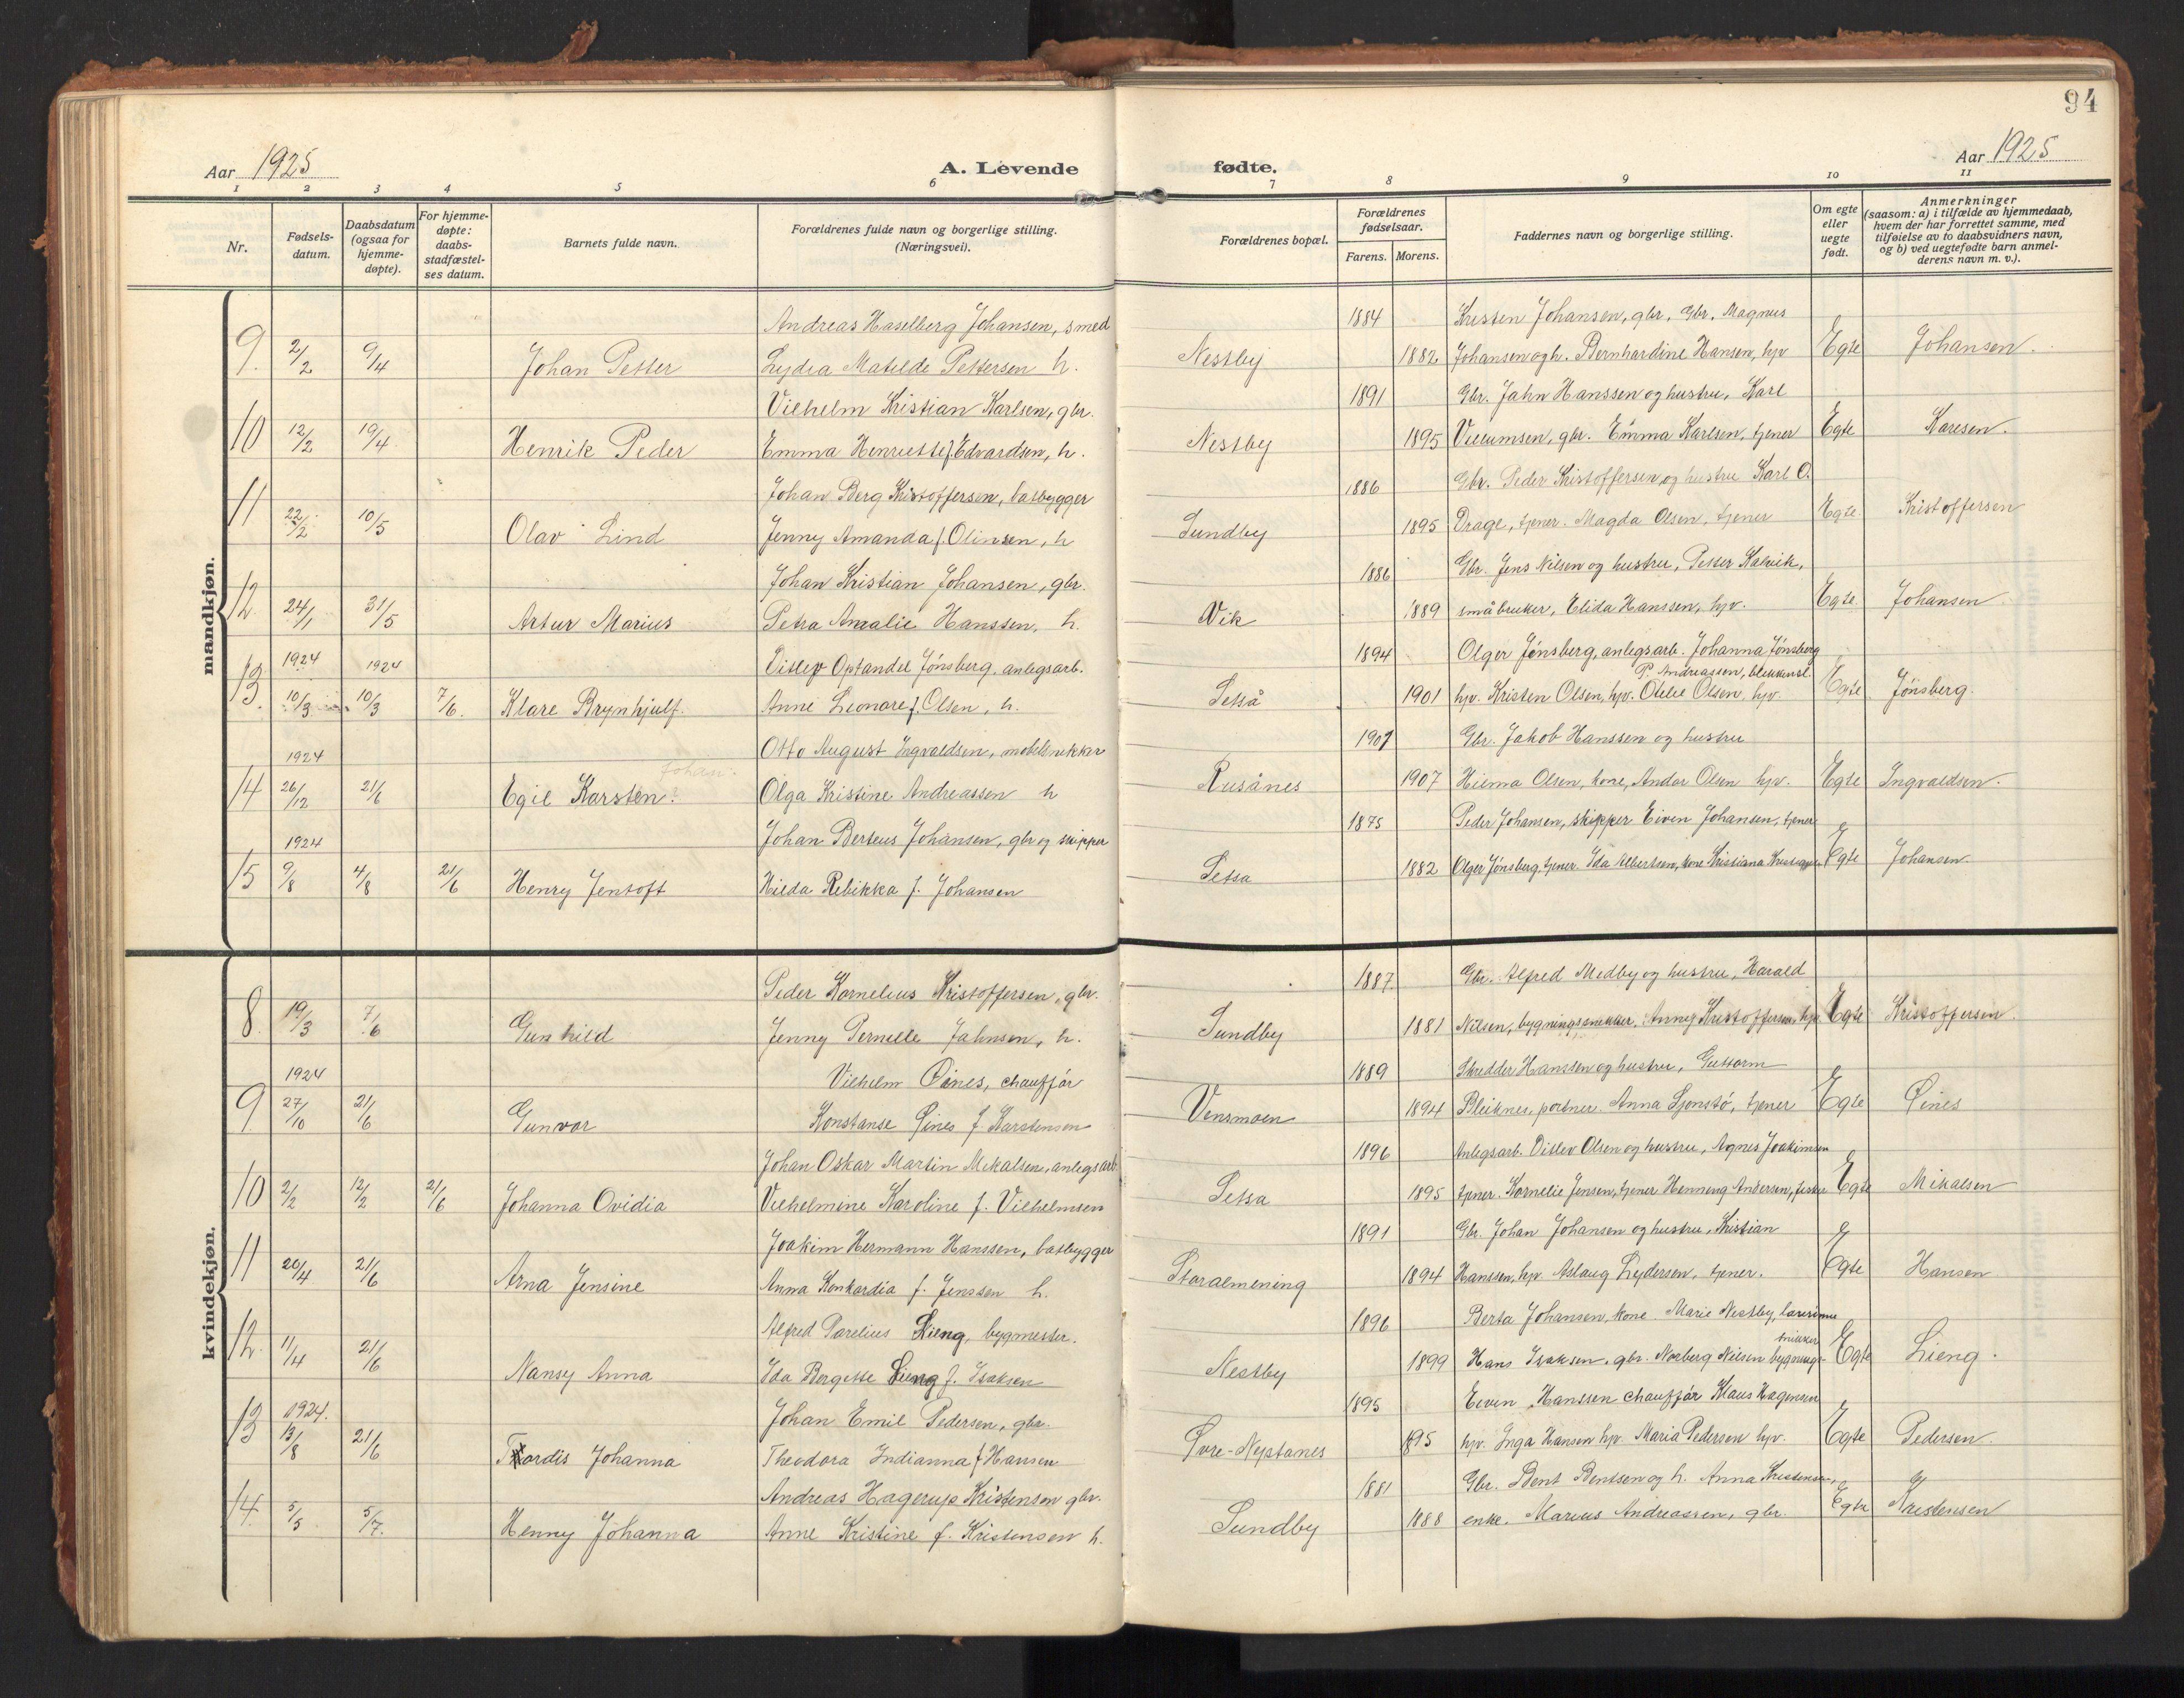 94
Aar 1925
A. Levende fødte.
Aar 1925
1 2 3 4 5 6 7 8 9 10 11
Nr.
Fødsels-
datum.
Daabsdatum
(ogsaa for
hjemme-
døpte).
For hjemme-
døpte:
daabs-
stadfæstel-
ses datum.
Barnets fulde navn.
Forældrenes fulde navn og borgerlige stilling.
(Næringsvei).
Forældrenes bopæl.
Forældrenes
fødselsaar.
Farens. Morens.
Faddernes navn og borgerlige stilling.
Om egte
eller
uegte
født.
Anmerkninger
(saasom: a) i tilfælde av hjemmedaab,
hvem der har forrettet samme, med
tilføielse av to daabsvidners navn,
og b) ved uegtefødte barn anmel-
derens navn m. v.).
mandkjøn.
Andreas Haselberg Johansen, smed 1884 Kristen Johansen, gbr. Gbr. Magnus
9. 2/2 9/4 Johan Petter Lydia Matilde Pettersen h. Nestby 1882 Johansen og h. Bernhardine Hansen, hpv Egte Johansen.
Vilhelm Kristian Karlsen, gbr. 1891 Gbr. Jahn Hanssen og hustru, Karl
10 12/2 19/4 Henrik Peder Emma Henriette f. Edvardsen, h. Nestby 1895 Villumsen, gbr. Emma Karlsen, tjener Egte Karlsen.
Johan Berg Kristoffersen, båtbygger 1886 Gbr. Peder Kristoffersen og hustru Karl O.
11 22/2 10/5 Olav Lind Jenny Amanda f. Olinsen, h Sundby 1895 Drage, tjener. Magda Olsen, tjener Egte. Kristoffersen
Johan Kristian Johansen, gbr. 1886 Gbr. Jens Nilsen og hustru, Petter Kalvik,
12. 24/1 31/5 Artur Marius Petra Amalie Hanssen, h. Vik 1889 småbruker, Elida Hanssen, hpv. Egte. Johansen
1924 1924 Ditlev Optandel Jönsberg, anlegsarb. 1894 Olger Jönsberg, anlegsarb. Johanna Jönsberg
P. Andreassen, blekksl.
13. 10/3 10/3 7/6. Klare Brynhjulf. Anne Leonore f. Olsen, h. Setså 1901 hpv. Kristen Olsen, hpv. Otelie Olsen, hpv. Egte Jönsberg.
1924 Otto August Ingvaldsen, møbelsnekker 1907 Gbr. Jakob Hanssen og hustru
Johan.
14 26/12 21/6 Egil Karsten. Olga Kristine Andreassen h Rusånes 1907 Hilma Olsen, kone, Andor Olsen hpv. Egte Ingvaldsen.
1924 Johan Berteus Johansen, gbr og skipper 1875 Peder Johansen, skipper Eiven Johansen, tjener
15 9/8 4/8 21/6 Henry Jentoft Hilda Rebikka f. Johansen Setsa 1882 Olger Jönsberg, tjener. Ida Albertsen, kone Kristiana Egte Johansen
kvindekjøn.
Peder Kornelius Kristoffersen, gbr. 1887 Gbr. Alfred Medby og hustru, Harald
8. 19/3 7/6 Gunhild Jenny Pernelle Jahnsen, h. Sundby 1881 Nilsen, bygningssnekker. Anney Kristoffersen, hpv. Egte Kristoffersen.
1924 Vilhelm Øines, chauffør 1889 Skredder Hanssen og hustru, Guttorm
9. 27/10 21/6 Gunvor Konstanse Øines f. Karstensen Vensmoen 1894 Bleiknes, portner. Anna Sjonstø, tjener Egte Øines
Johan Oskar Martin Mikalsen, anlegsarb. 1896 Anlegsarb. Ditlev Olsen og hustru, Agnes Joakimsen
10 2/2 12/2 21/6 Johanna Ovidia Vilhelmine Karoline f. Vilhelmsen Setsa 1895 tjener. Kornelie Jensen, tjener Henning Andersen, fisker Egte Mikalsen
Joakim Hermann Hanssen, båtbygger 1891 Gbr. Johan Johansen og hustru, Kristian
11 20/4 21/6 Arna Jensine Anna Konkordia f. Jenssen h. Storalmening 1894 Hanssen, hpv. Aslaug Lydersen, tjener. Egte Hansen
Alfred Parelius Lieng, bygmester. 1896 Berta Johansen, kone. Marie Nestby, lærerinne
snikker
12. 11/4 21/6 Nansy Anna Ida Bergitte Lieng f. Isaksen Nestby 1899 Hans Isaksen, gbr. Norberg Nilsen bygnings- Egte Lieng.
1924. Johan Emil Pedersen, gbr. 1895 Eiven Hanssen chauffør Klaus Hagensen
13 13/8 21/6 Tordis Johanna Theodora Indianna f Hansen Øvre-Neptanes 1895 hpv. Inga Hansen hpv. Maria Pedersen hpv. Egte Pedersen
Andreas Hagerup Kristensen gbr. 1881 Gbr. Bent Bentsen og h. Anna Kristensen,
14. 5/5 5/7. Henny Johanna Anne Kristine f. Kristensen h. Sundby 1888 enke. Marius Andreassen, gbr. Egte Kristensen